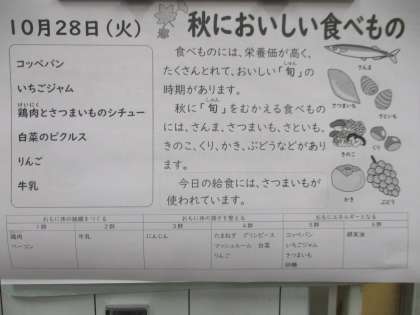 10月28日(火)
コッペパン
いちごジャム
けいにく
鶏肉とさつまいものシチュー
白菜のピクルス
りんご
牛乳
秋においしい食べもの
食べものには、栄養価が高く、
しゅん
たくさんとれて、おいしい「旬」の
時期があります。
しゅん
秋に「旬」をむかえる食べもの
には、さんま、さつまいも、さといも、
きのこ、くり、かき、ぶどうなどがあり
ます。
今日の給食には、さつまいもが
使われています。
さんま
さつまいも
さといも
きのこ
くり
かき
ぶどう
おもに体の組織をつくる
おもに体の調子を整える
おもにエネルギーとなる
1群 2群 3群 4群 5群 6群
鶏肉 牛乳 にんじん たまねぎ グリンピース コッペパン
ベーコン マッシュルーム 白菜 いちごジャム
りんご さつまいも
砂糖